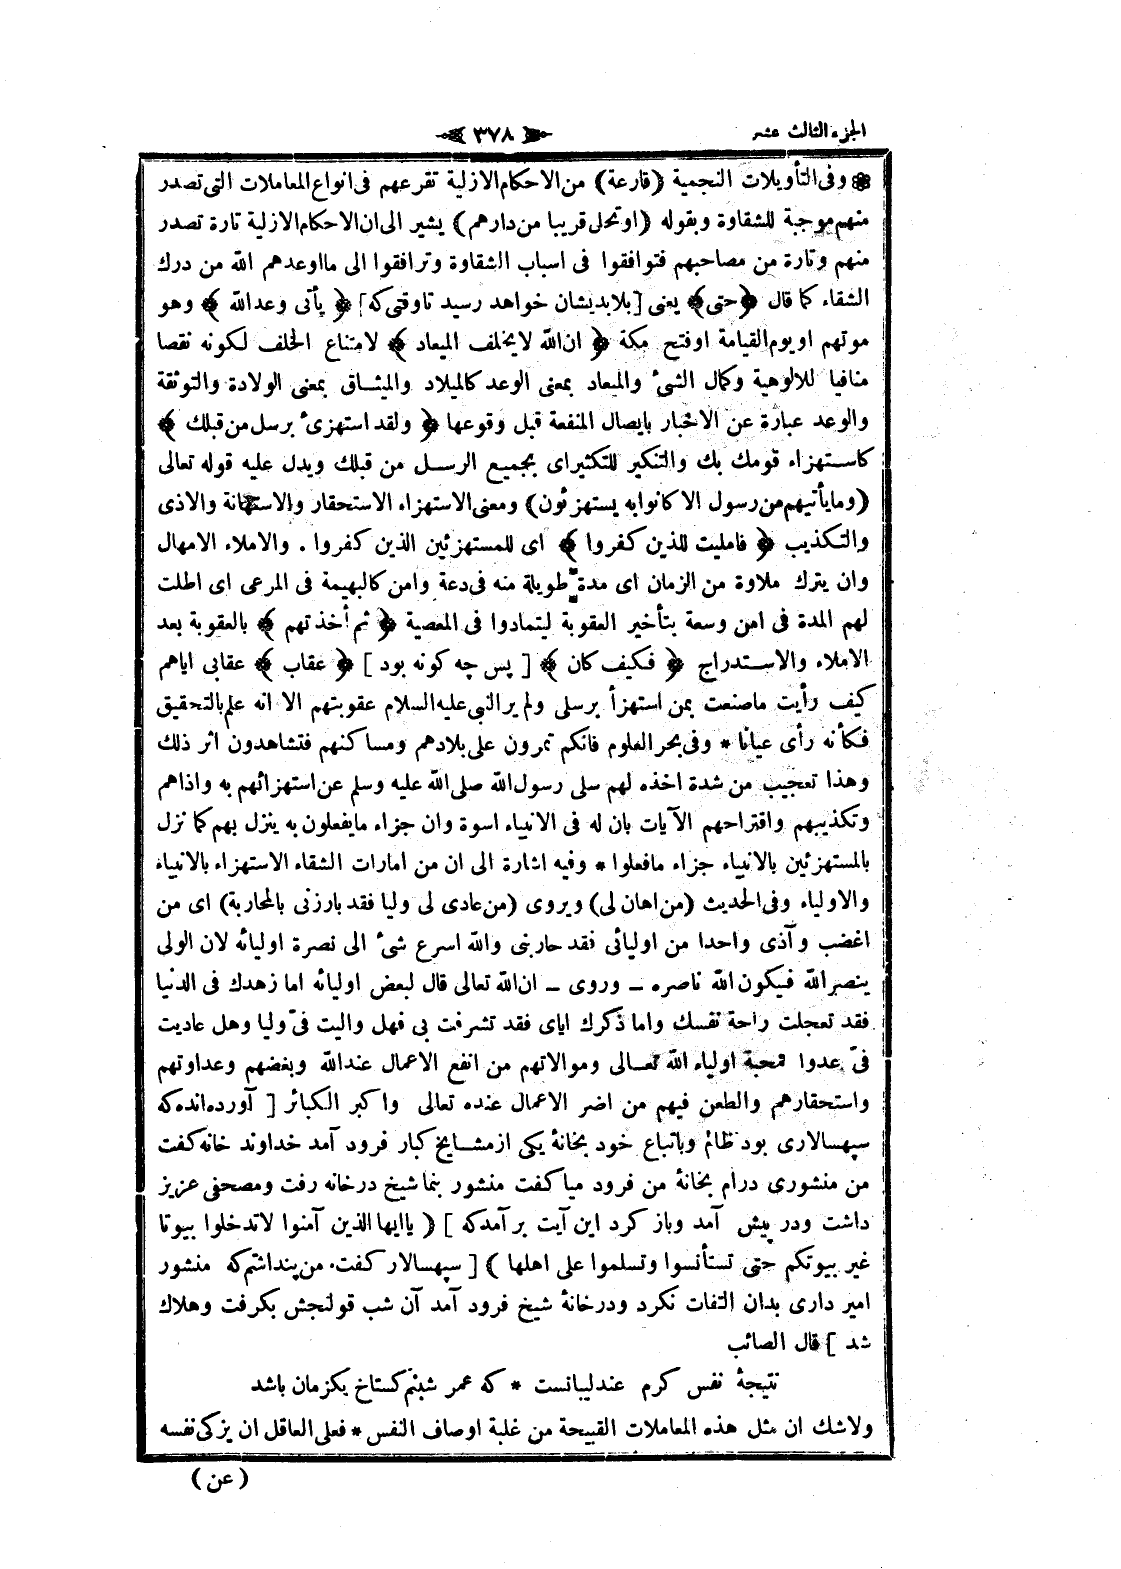 الجزء الثالث عشر
٣٧٨
وفى التأويلات النجمية (قارعة) من الاحكام الازلية تقرعهم فى انواع المعاملات التى تصدر
منهم موجبة للشقاوة وبقوله (اوتحل قريبا من دارهم) يشير الى ان الاحكام الازلية تارة تصدر
منهم وتارة من مصاحبهم فتوافقوا فى اسباب الشقاوة وترافقوا الى ما اوعدهم الله من درك
الشقاء كما قال ﴿حتى﴾ يعنى [بلابديشان خواهد رسيد تاوقتى كه] ﴿ يأتى وعدالله ﴾ وهو
موتهم او يوم القيامة اوفتح مكة ﴿ ان الله لايخلف الميعاد ﴾ لامتناع الخلف لكونه نقصا
منافيا للالوهية وكمال الشئ والميعاد بمعنى الوعد كالميلاد والميثاق بمعنى الولادة والتوثقة
والوعد عبارة عن الاخبار بايصال المنفعة قبل وقوعها ﴿ ولقد استهزئ برسل من قبلك ﴾
كاستهزاء قومك بك والتنكير للتكثير اى بجميع الرسل من قبلك ويدل عليه قوله تعالى
(وما يأتيهم من رسول الا كانوابه يستهزئون) ومعنى الاستهزاء الاستحقار والاستهانة والاذى
والتكذيب ﴿ فامليت للذين كفروا ﴾ اى للمستهزئين الذين كفروا . والاملاء الامهال
وان يترك ملاوة من الزمان اى مدة طويلة منه فى دعة وامن كالبهيمة فى المرعى اى اطلت
لهم المدة فى امن وسعة بتأخير العقوبة ليتمادوا فى المعصية ﴿ ثم أخذتهم ﴾ بالعقوبة بعد
الاملاء والاستدراج ﴿ فكيف كان ﴾ [ پس چه كونه بود ] ﴿ عقاب ﴾ عقابى اياهم
كيف رأيت ماصنعت بمن استهزأ برسلى ولم ير النبى عليه السلام عقوبتهم الا انه علم بالتحقيق
فكأنه رأى عيانا * وفى بحر العلوم فانكم تمرون على بلادهم ومساكنهم فتشاهدون اثر ذلك
وهذا تعجيب من شدة اخذه لهم سلى رسول الله صلى الله عليه وسلم عن استهزائهم به واذاهم
وتكذيبهم واقتراحهم الآيات بان له فى الانبياء اسوة وان جزاء مايفعلون به ينزل بهم كما نزل
بالمستهزئين بالانبياء جزاء مافعلوا * وفيه اشارة الى ان من امارات الشقاء الاستهزاء بالانبياء
والاولياء وفى الحديث (من اهان لى) ويروى (من عادى لى وليا فقد بارزنى بالمحاربة) اى من
اغضب وآذى واحدا من اوليائى فقد حاربنى والله اسرع شئ الى نصرة اوليائه لان الولى
ينصر الله فيكون الله ناصره ــ وروى ــ ان الله تعالى قال لبعض اوليائه اما زهدك فى الدنيا
فقد تعجلت راحة نفسك واما ذكرك اياى فقد تشرفت بى فهل واليت فىّ وليا وهل عاديت
فىّ عدوا فمحبة اولياء الله تعالى وموالاتهم من انفع الاعمال عندالله وبغضهم وعداوتهم
واستحقارهم والطعن فيهم من اضر الاعمال عنده تعالى واكبر الكبائر [ آورده اندكه
سپهسالارى بود ظالم وباتباع خود بخانهٔ يكى از مشايخ كبار فرود آمد خداوند خانه كفت
من منشورى درام بخانهٔ من فرود ميا كفت منشور بنما شيخ درخانه رفت ومصحفى عزيز
داشت ودر پيش آمد وباز كرد اين آيت بر آمدكه ] ( ياايها الذين آمنوا لاتدخلوا بيوتا
غير بيوتكم حتى تستأنسوا وتسلموا على اهلها ) [ سپهسالار كفت. من پنداشتم كه منشور
امير دارى بدان التفات نكرد ودرخانهٔ شيخ فرود آمد آن شب قولنجش بكرفت وهلاك
شد ] قال الصائب
نتيجهٔ نفس كرم عندليبانست * كه عمر شبنم كستاخ يكزمان باشد
ولاشك ان مثل هذه المعاملات القبيحة من غلبة اوصاف النفس * فعلى العاقل ان يزكى نفسه
( عن )